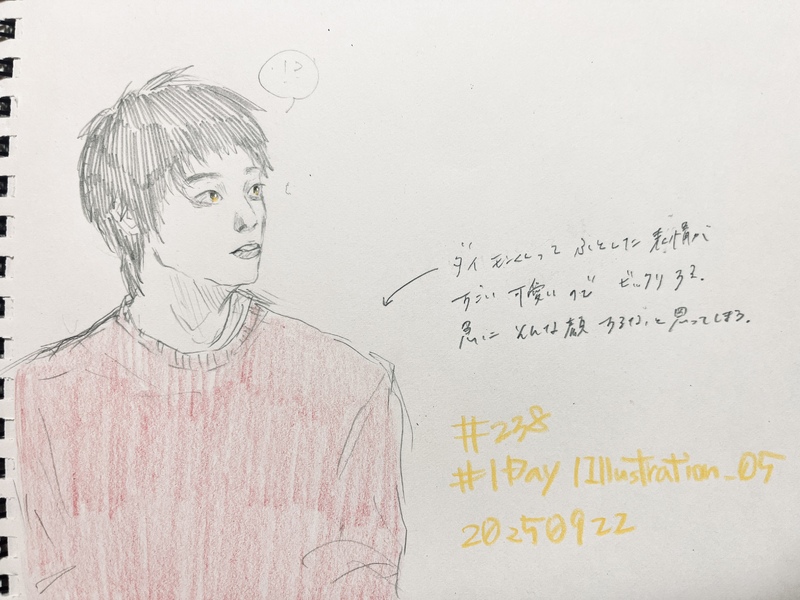 !?
ダイモンくんって ふとした 表情が
すごい 可愛い ので ビックリする.
急に そんな 顔 するな、と思ってしまう.
#238
#1Day1Illustration_05
20250922